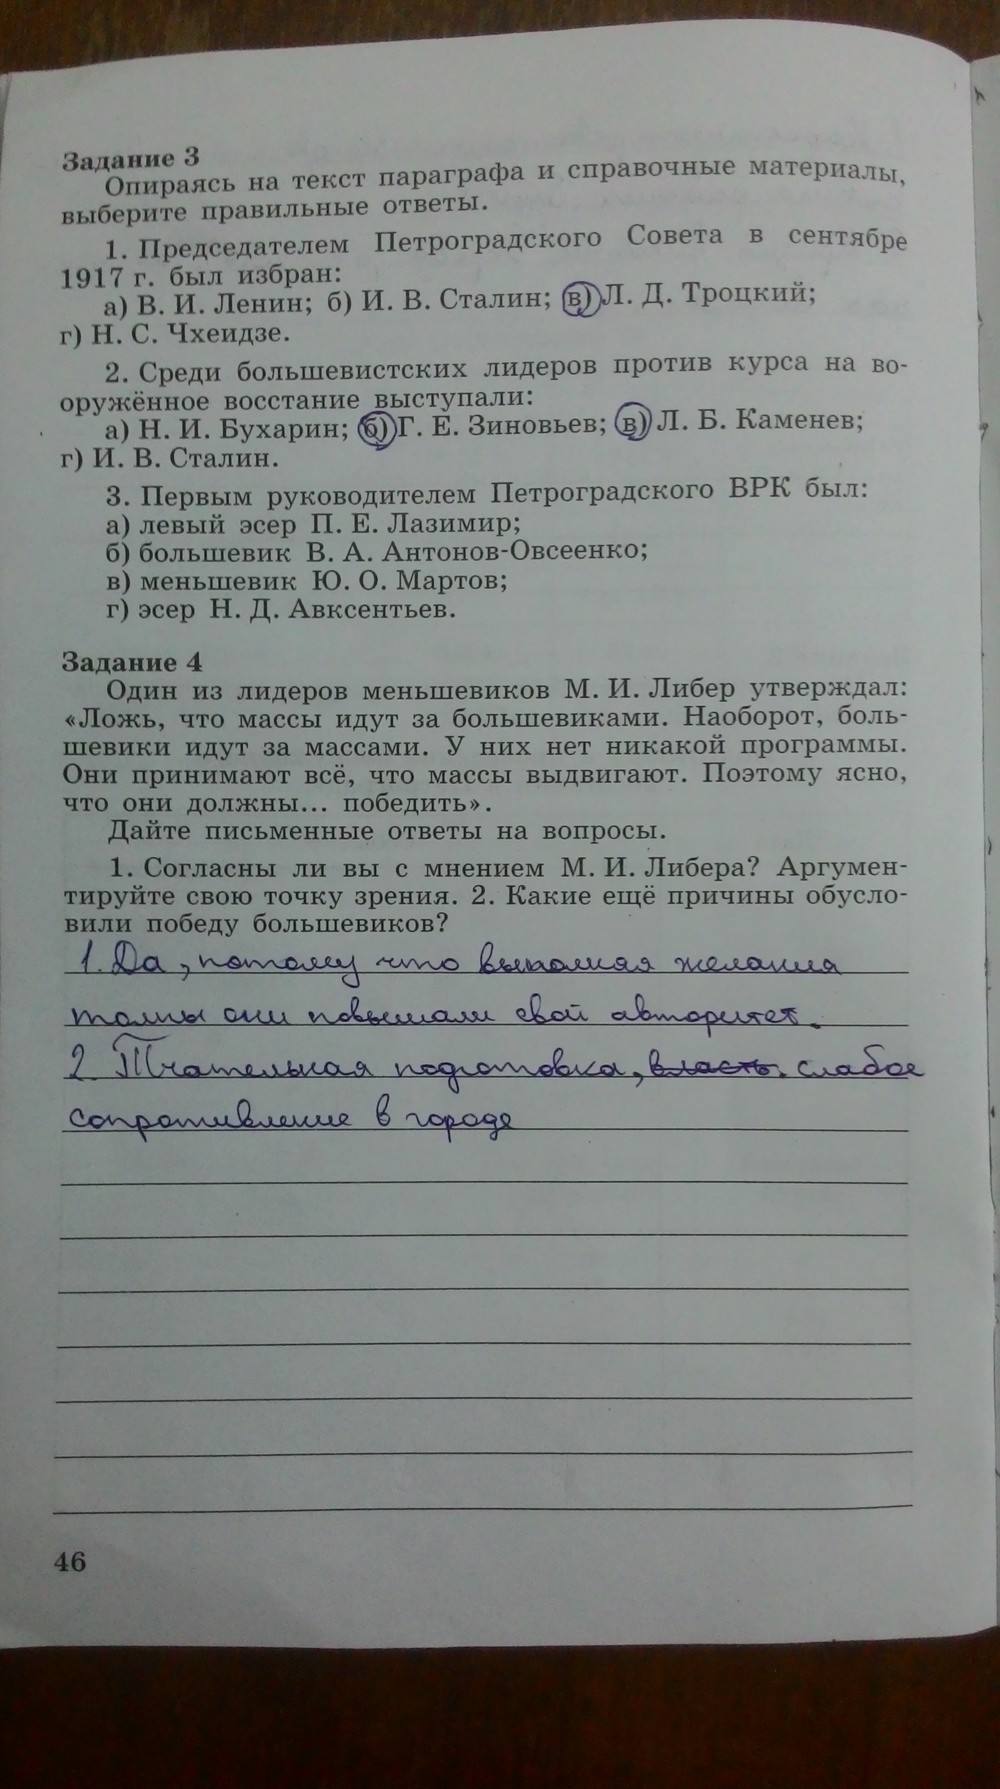 Задание 3
Опираясь на текст параграфа и справочные материалы,
выберите правильные ответы.
1. Председателем Петроградского Совета в сентябре
1917 г. был избран:
а) В. И. Ленин; б) И. В. Сталин; в) Л. Д. Троцкий;
г) Н. С. Чхеидзе.
2. Среди большевистских лидеров против курса на во-
оружённое восстание выступали:
а) Н. И. Бухарин; б) Г. Е. Зиновьев; в) Л. Б. Каменев;
г) И. В. Сталин.
3. Первым руководителем Петроградского ВРК был:
а) левый эсер П. Е. Лазимир;
б) большевик В. А. Антонов-Овсеенко;
в) меньшевик Ю. О. Мартов;
г) эсер Н. Д. Авксентьев.
Задание 4
Один из лидеров меньшевиков М. И. Либер утверждал:
«Ложь, что массы идут за большевиками. Наоборот, боль-
шевики идут за массами. У них нет никакой программы.
Они принимают всё, что массы выдвигают. Поэтому ясно,
что они должны... победить».
Дайте письменные ответы на вопросы.
1. Согласны ли вы с мнением М. И. Либера? Аргумен-
тируйте свою точку зрения. 2. Какие ещё причины обусло-
вили победу большевиков?
1. Да, потому что выполняя желания
толпы они повышали свой авторитет.
2. Тщательная подготовка, власть. слабое
сопротивление в городе
46